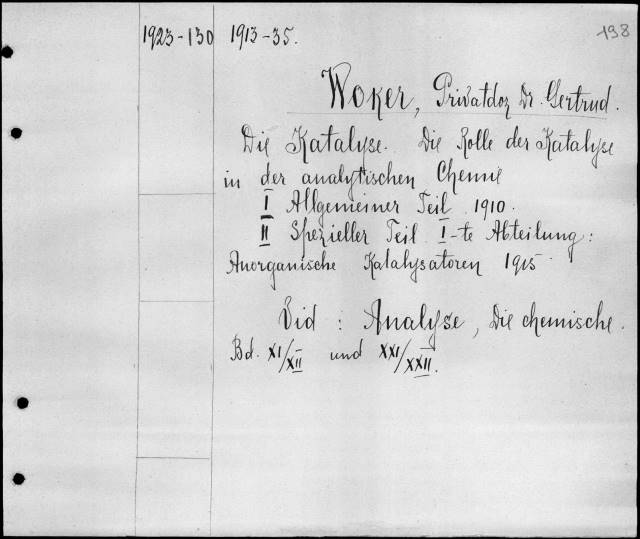 1923-130 1913-35. 198
Woker, Privatdoz Dr. Gertrud.
Die Katalyse. Die Rolle der Katalyse
in der analytischen Chemie
I Allgemeiner Teil 1910.
II Spezieller Teil I-te Abteilung:
Anorganische Katalysatoren 1915.
Vid: Analyse, Die chemische.
Bd. XI/XII und XXI/XXII.